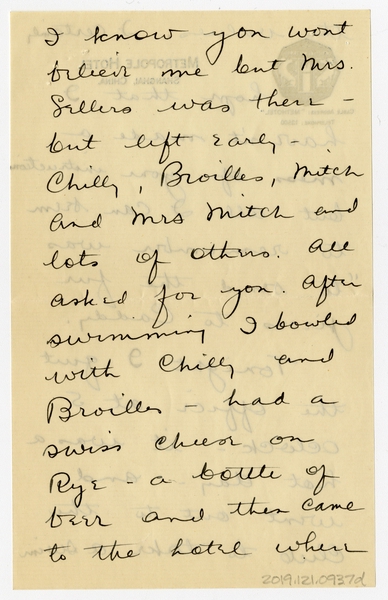 I know you wont
believe me but Mrs.
Sellers was there –
but left early –
Chilly, Broilles, Mitch
and Mrs Mitch and
lots of others. All
asked for you. After
swimming I bowled
with Chilly and
Broilles – had a
swiss cheese on
Rye – a bottle of
beer and then came
to the hotel when
2019.121.0937d